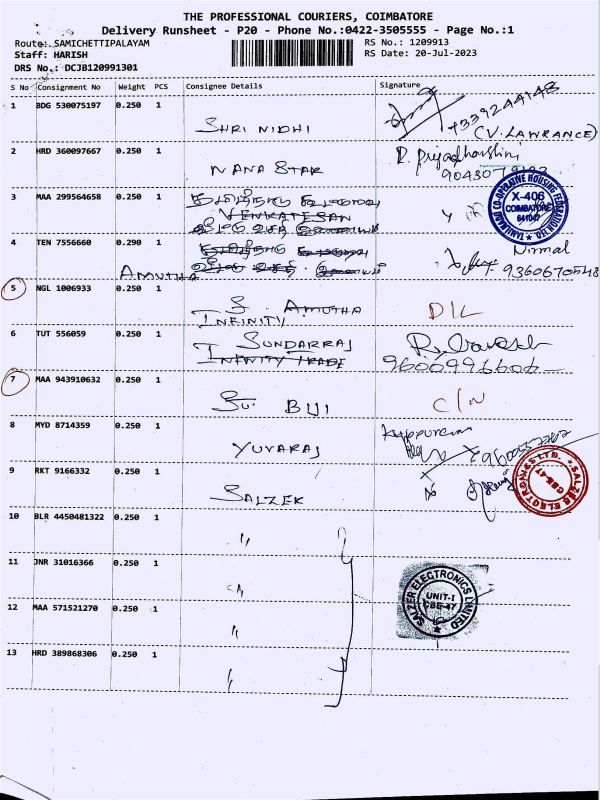 THE PROFESSIONAL COURIERS, COIMBATORE
Delivery Runsheet - P20 - Phone No.:0422-3505555 - Page No.:1
Route: SAMICHETTIPALAYAM
RS No.: 1209913
Staff: HARISH
RS Date: 20-Jul-2023
DRS No.: DCJB120991301
S No Consignment No Weight PCS Consignee Details Signature
1 BDG 530075197 0.250 1
SHRI NIDHI
(V. LAWRANCE)
2 HRD 360097667 0.250 1
NANA STAR
R. Priyadharshini
3 MAA 299564658 0.250 1
VENKATESAN
TAMILNADU CO-OPERATIVE HOUSING FEDERATION LTD
X-406
COIMBATORE
641047
4 TEN 7556660 0.290 1
AMUTHA
Nirmal
9360670548
5 NGL 1006933 0.250 1
S. AMUTHA
D/L
INFINITY
6 TUT 556059 0.250 1
SUNDARRAJ
INFINITY TRADE
9600996606
7 MAA 943910632 0.250 1
BIJI
C/N
8 MYD 8714359 0.250 1
YUVARAJ
9 RKT 9166332 0.250 1
SALZER
SALZER ELECTRONICS LTD.
CBE-47
10 BLR 4450481322 0.250 1
"
11 JNR 31016366 0.250 1
"
SALZER ELECTRONICS LIMITED
UNIT-I
CBE-47
12 MAA 571521270 0.250 1
"
13 HRD 389868306 0.250 1
"